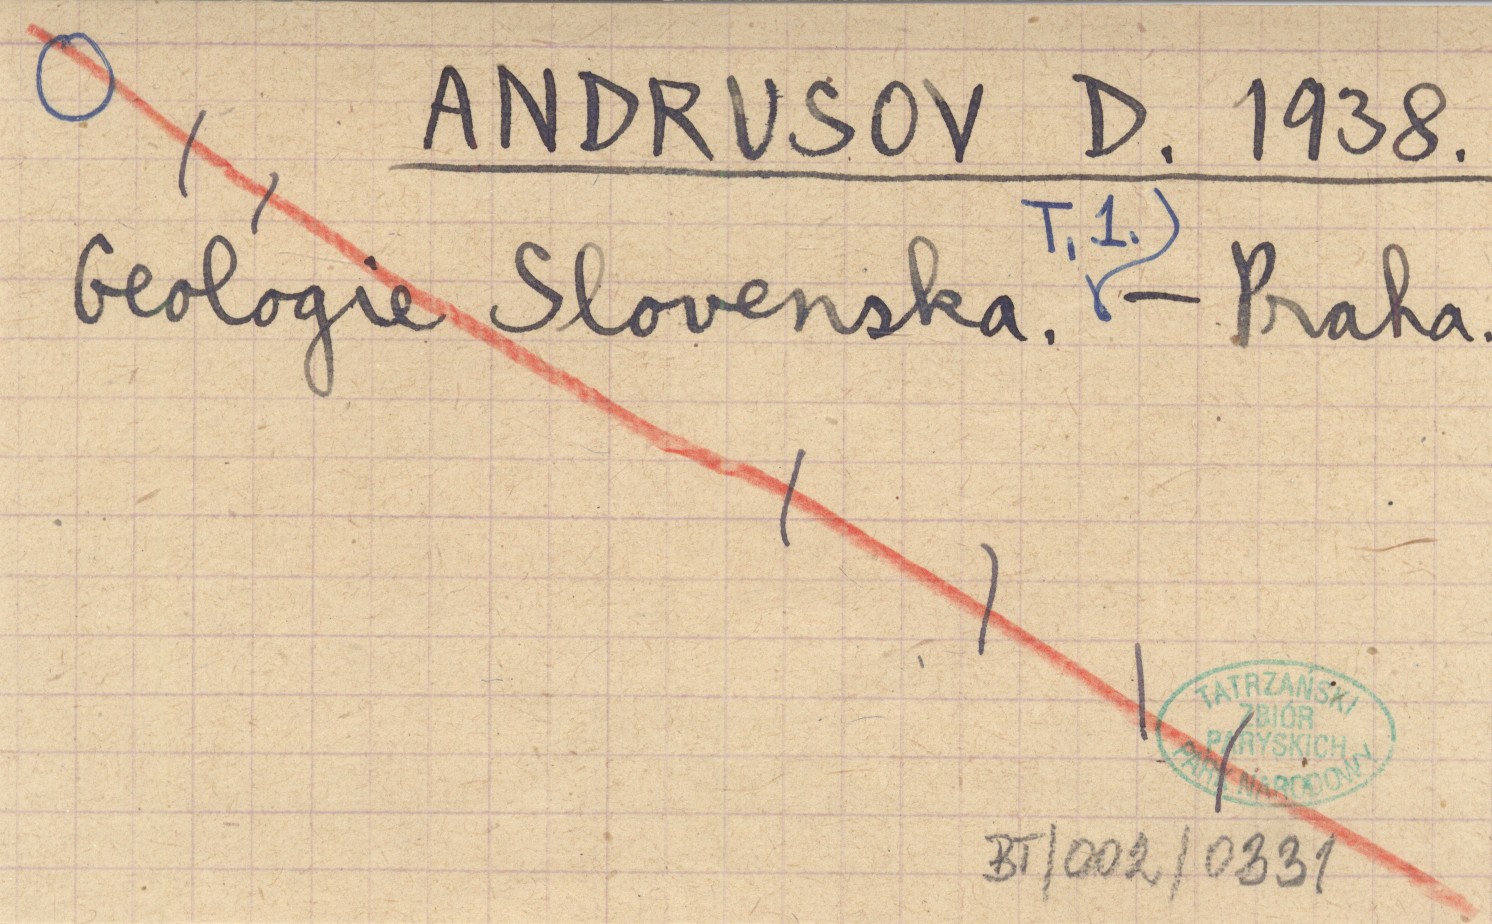 ANDRUSOV D. 1938.
T. 1.
Geologie Slovenska. — Praha.
TATRZAŃSKI
ZBIÓR
PARYSKICH
PARK NARODOWY
BT/002/0331